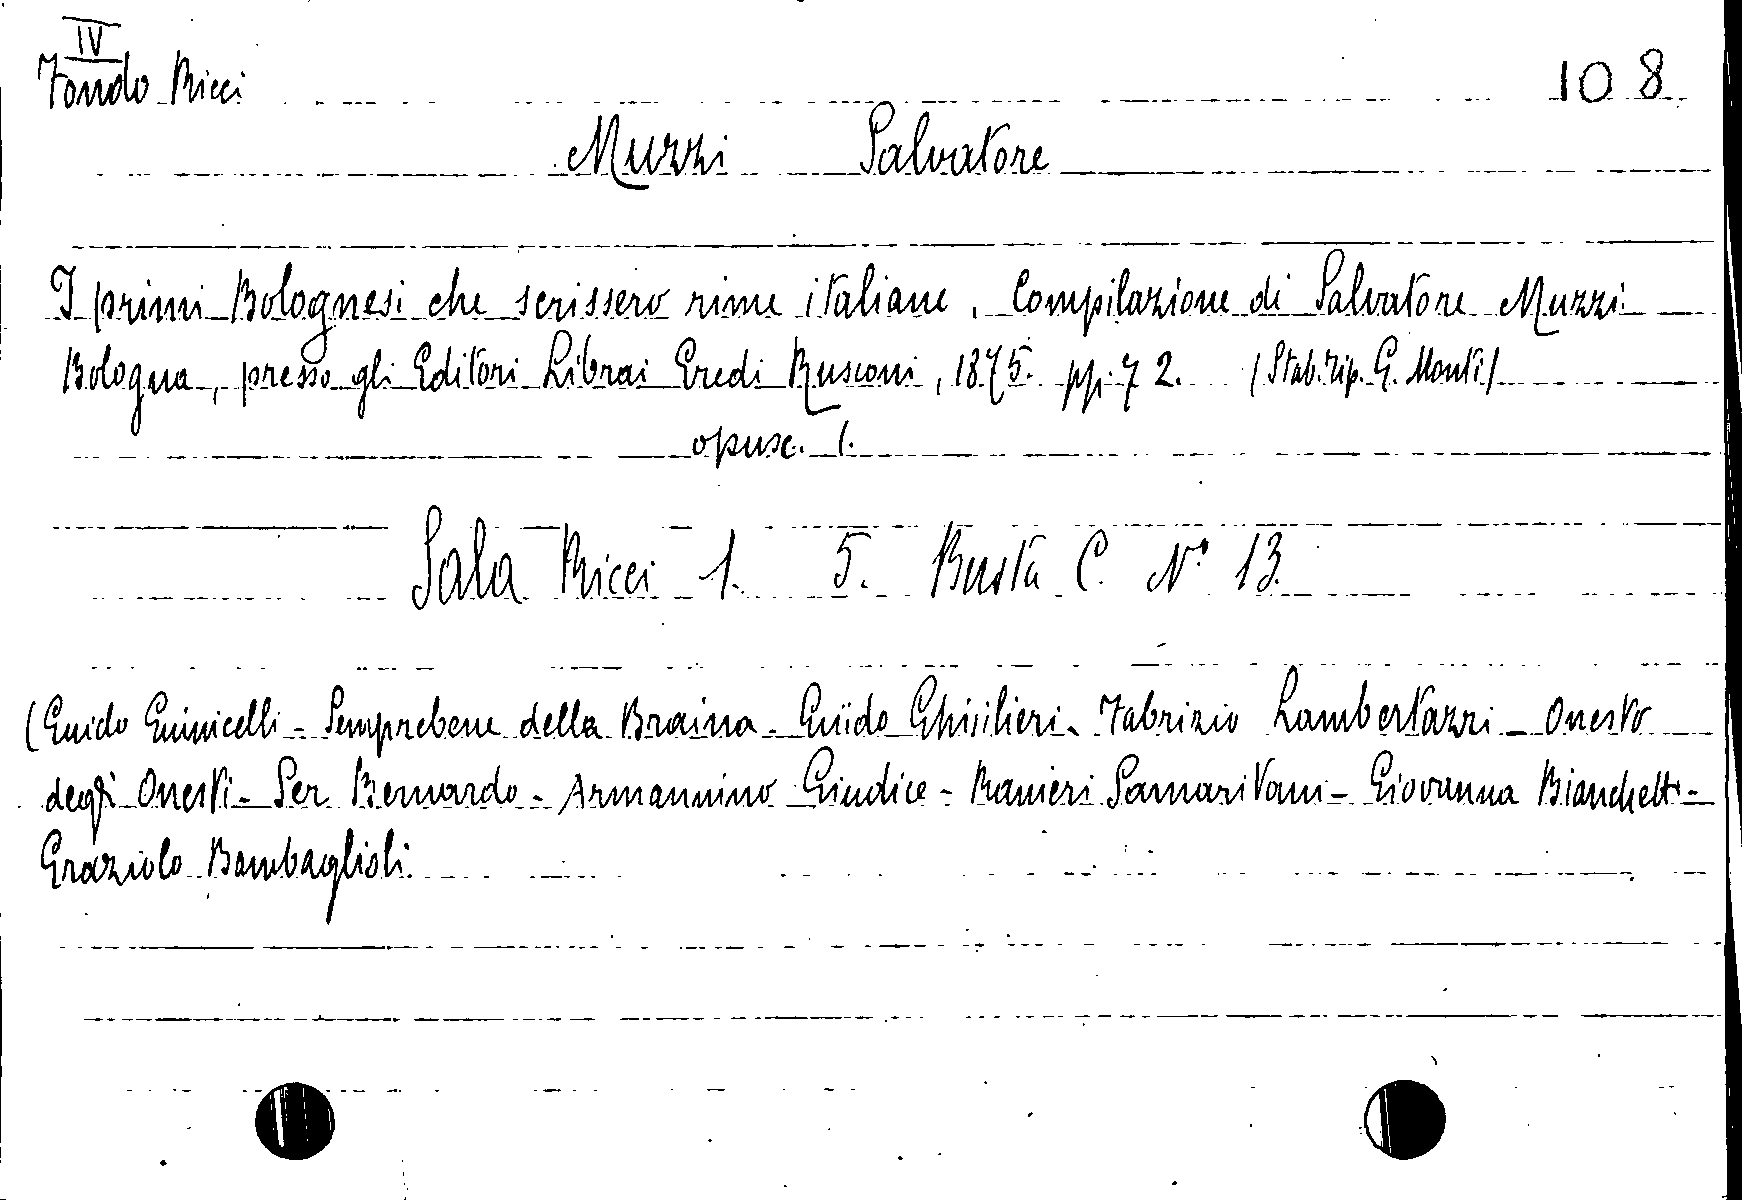 IV
Fondo Ricci 108
Muzzi Salvatore
I primi Bolognesi che scrissero rime italiane. Compilazione di Salvatore Muzzi
Bologna, presso gli Editori Librai Eredi Rusconi, 1875. pp. 72. (Stab. Tip. G. Monti)
opusc. 1.
Sala Ricci 1. 5. Busta C. N° 13.
(Guido Guinicelli - Semprebene della Braina - Guido Ghisilieri - Fabrizio Lambertazzi - Onesto
degli Onesti - Ser Bernardo - Armannino Giudice - Ranieri Samaritani - Giovanna Bianchetti -
Graziolo Bambaglioli.